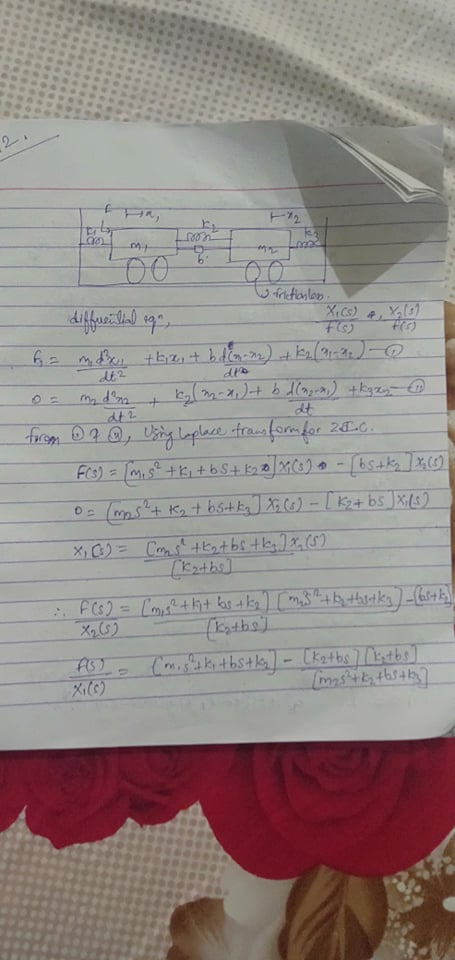 2.
F x1 k2 x2
k1 m1 b m2 k3
frictionless
differential eqn, X1(s)/F(s) &, X2(s)/F(s)
F1 = m1 d²x1/dt² + k1x1 + b d(x1-x2)/dt + k2(x1-x2) — ①
0 = m2 d²x2/dt² + k2(x2-x1) + b d(x2-x1)/dt + k3x2 — ⑪
from ① & ⑪, Using Laplace transform for Z.I.C.
F(s) = [m1s² + k1 + bs + k2] X1(s) - [bs+k2] X2(s)
0 = [m2s² + k2 + bs + k3] X2(s) - [k2 + bs] X1(s)
X1(s) = [m2s² + k2 + bs + k3] X2(s) / [k2+bs]
∴ F(s)/X2(s) = [m1s² + k1 + bs + k2] [m2s² + k2 + bs + k3] / [k2+bs] - (bs+k2)
F(s)/X1(s) = [m1s² + k1 + bs + k2] - [k2+bs] [k2+bs] / [m2s² + k2 + bs + k3]